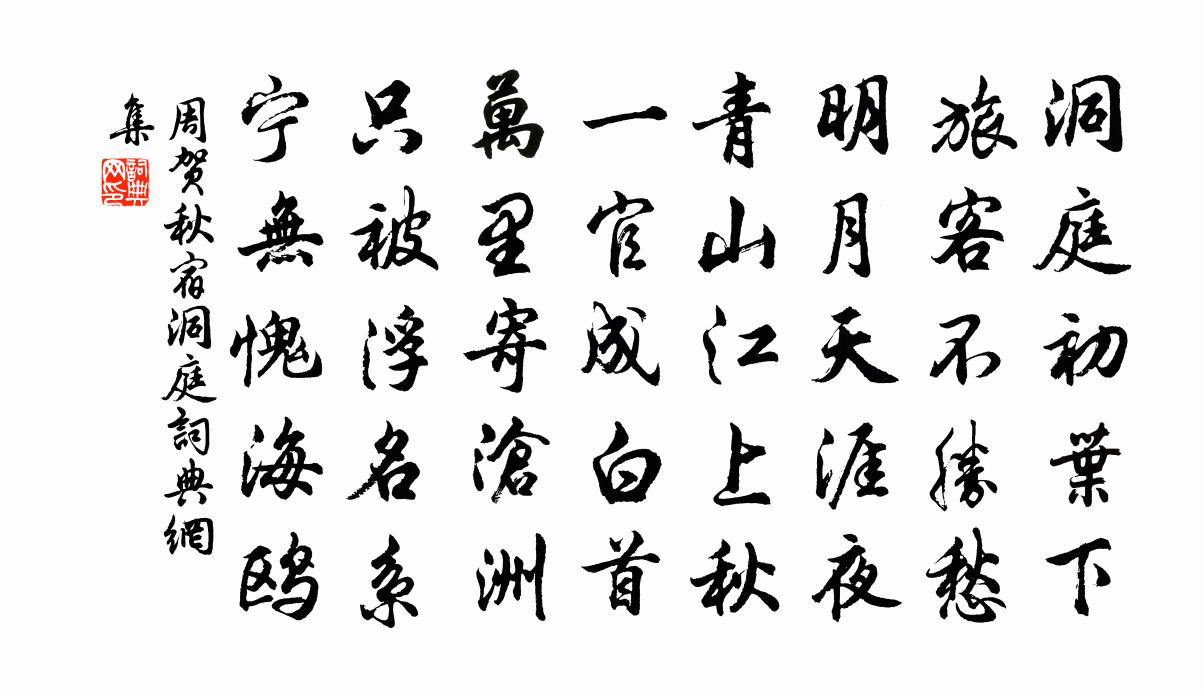 洞庭初葉下
旅客不勝愁
明月天涯夜
青山江上秋
一官成白首
萬里寄滄洲
只被浮名系
宁無愧海鸥
周贺秋宿洞庭詞典網
集
詞典
网印